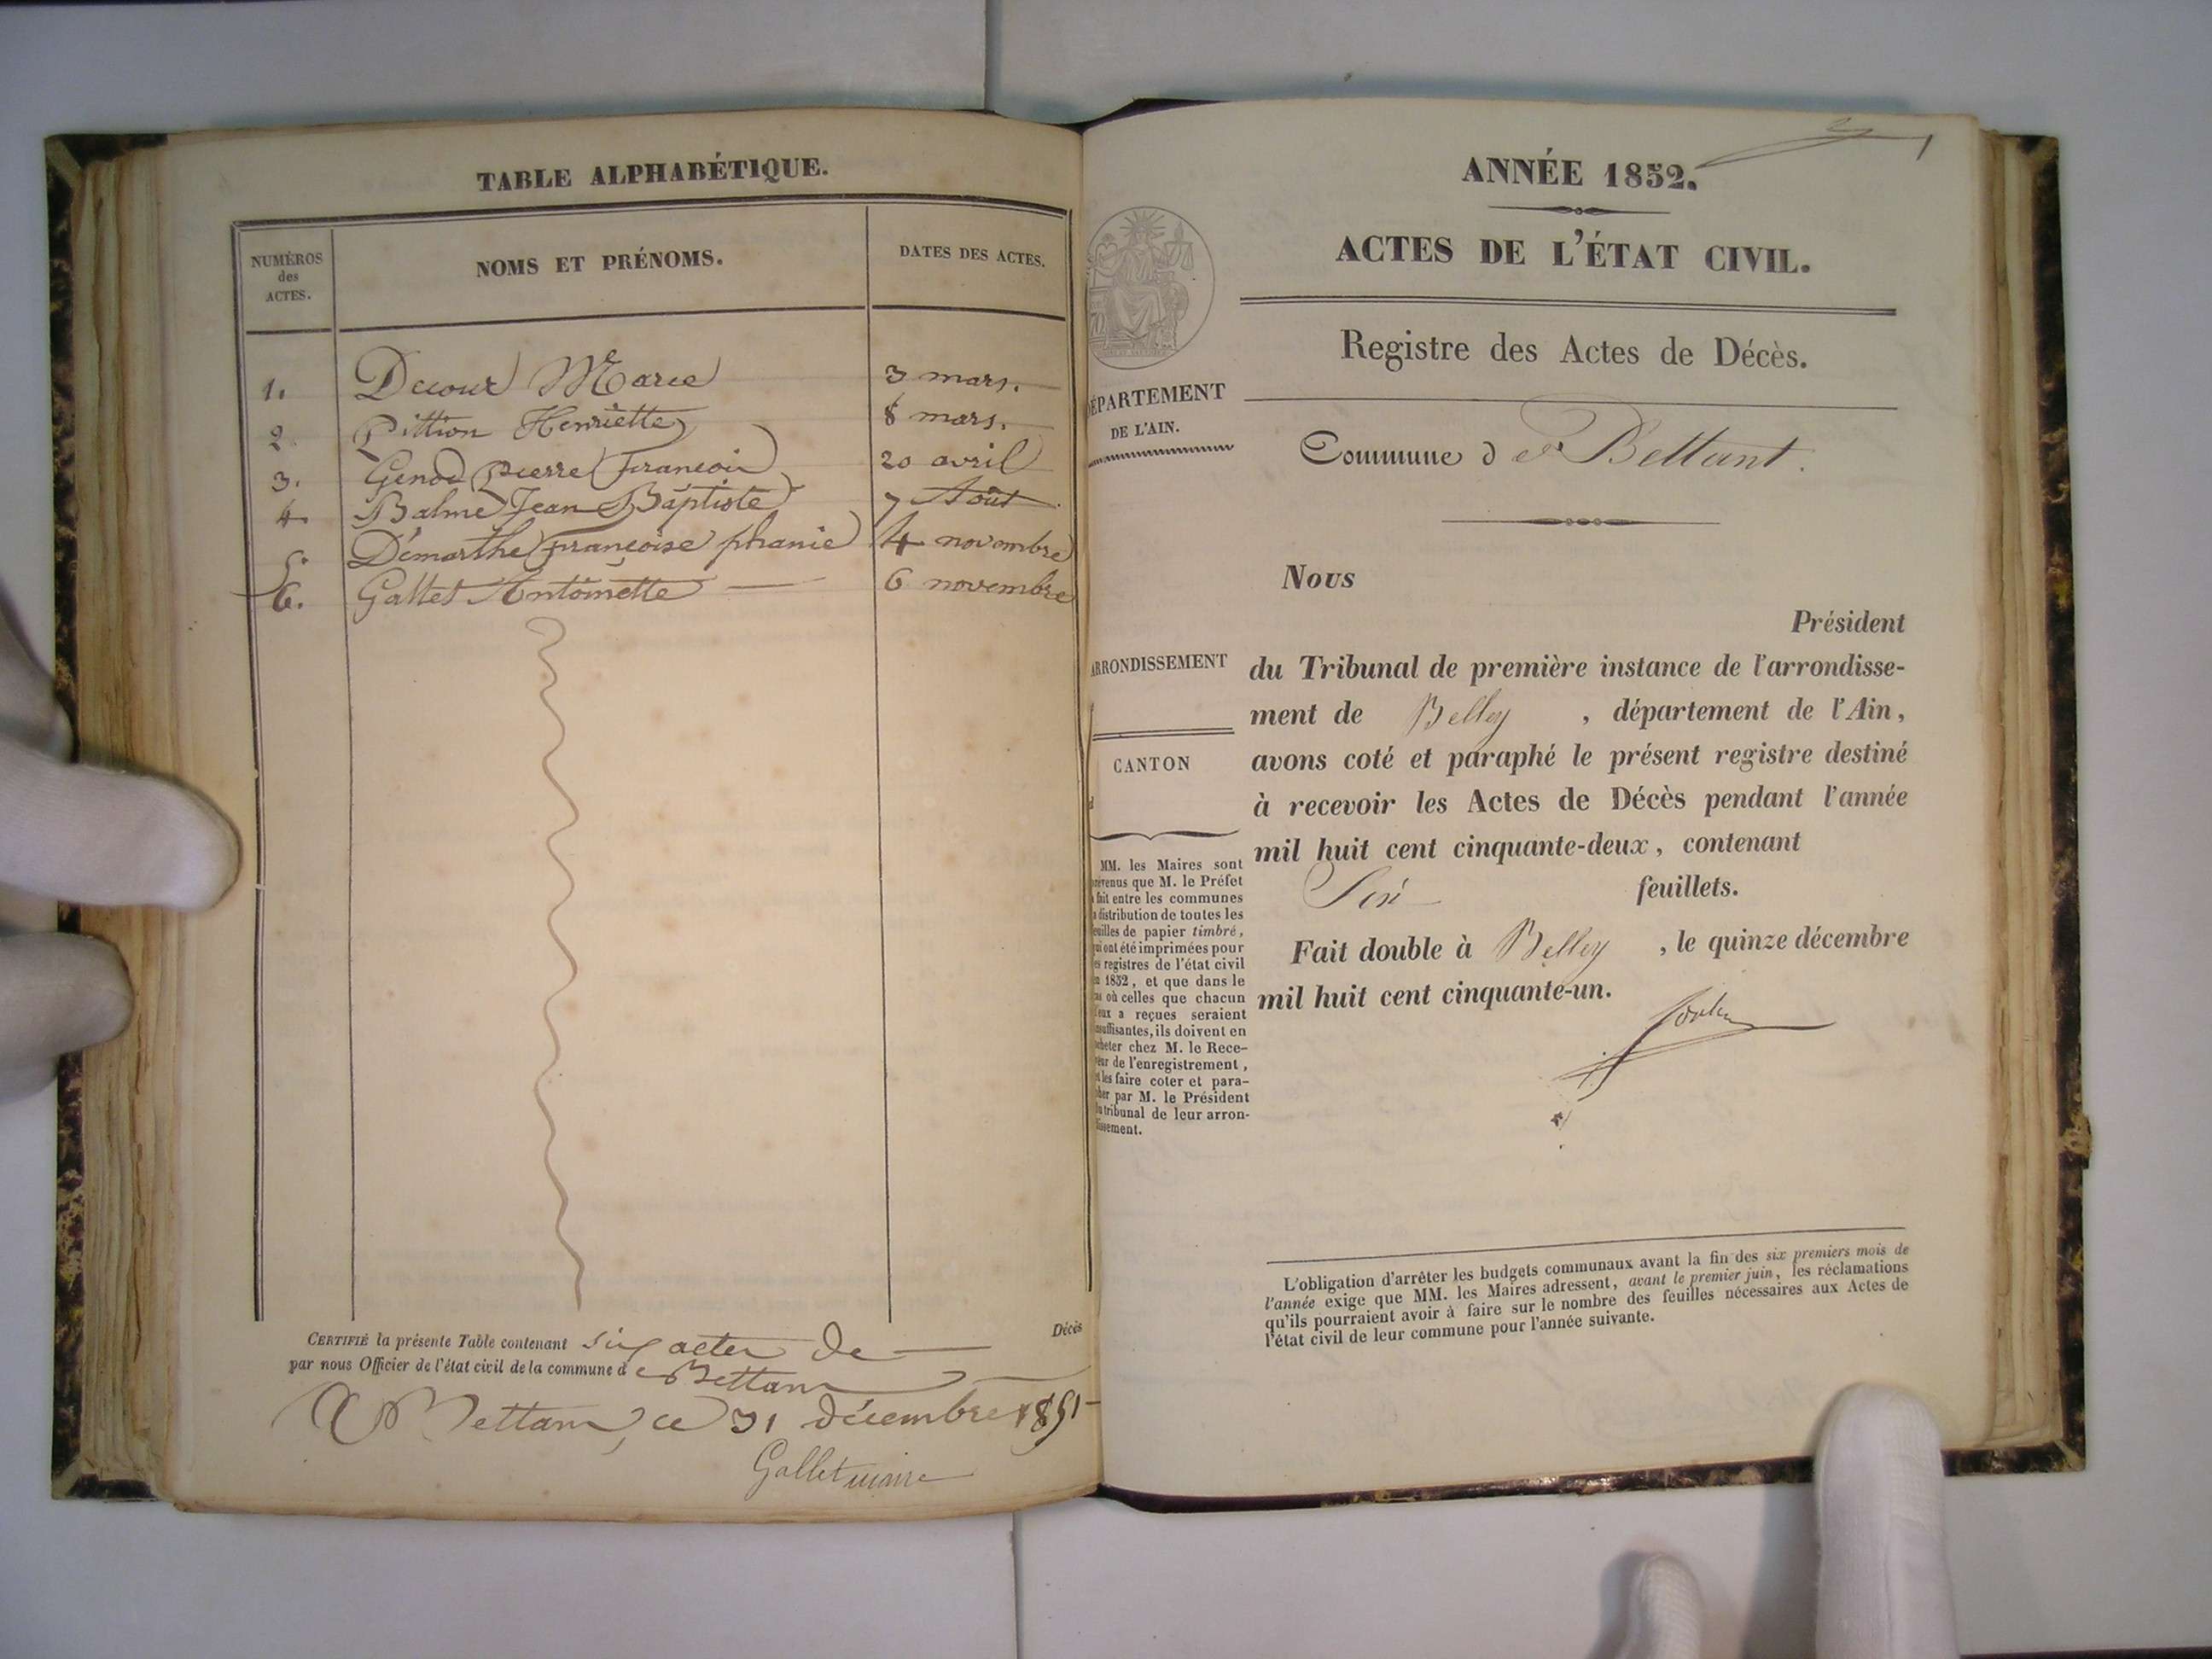 TABLE ALPHABÉTIQUE.
NUMÉROS
des
ACTES.
NOMS ET PRÉNOMS.
DATES DES ACTES.
1. Decour Marie 3 mars.
2. Pittion Henriette 8 mars.
3. Genod pierre françois 20 avril
4. Balme Jean Baptiste 7 Août
5. Démarthe françoise phanie 4 novembre
6. Gallet Antoinette 6 novembre
CERTIFIÉ la présente Table contenant six actes de Décès
par nous Officier de l'état civil de la commune de Bettant
A Bettant, ce 31 décembre 1851
Gallet maire
ANNÉE 1852.
ACTES DE L'ÉTAT CIVIL.
Registre des Actes de Décès.
DÉPARTEMENT
DE L'AIN.
Commune de Bettant.
ARRONDISSEMENT
CANTON
MM. les Maires sont
prévenus que M. le Préfet
a fait entre les communes
la distribution de toutes les
feuilles de papier timbré,
qui ont été imprimées pour
les registres de l'état civil
en 1852, et que dans le
cas où celles que chacun
d'eux a reçues seraient
insuffisantes, ils doivent en
acheter chez M. le Rece-
veur de l'enregistrement,
et les faire coter et para-
pher par M. le Président
du tribunal de leur arron-
dissement.
Nous
Président
du Tribunal de première instance de l'arrondisse-
ment de Belley, département de l'Ain,
avons coté et paraphé le présent registre destiné
à recevoir les Actes de Décès pendant l'année
mil huit cent cinquante-deux, contenant
Six feuillets.
Fait double à Belley, le quinze décembre
mil huit cent cinquante-un.
L'obligation d'arrêter les budgets communaux avant la fin des six premiers mois de
l'année exige que MM. les Maires adressent, avant le premier juin, les réclamations
qu'ils pourraient avoir à faire sur le nombre des feuilles nécessaires aux Actes de
l'état civil de leur commune pour l'année suivante.